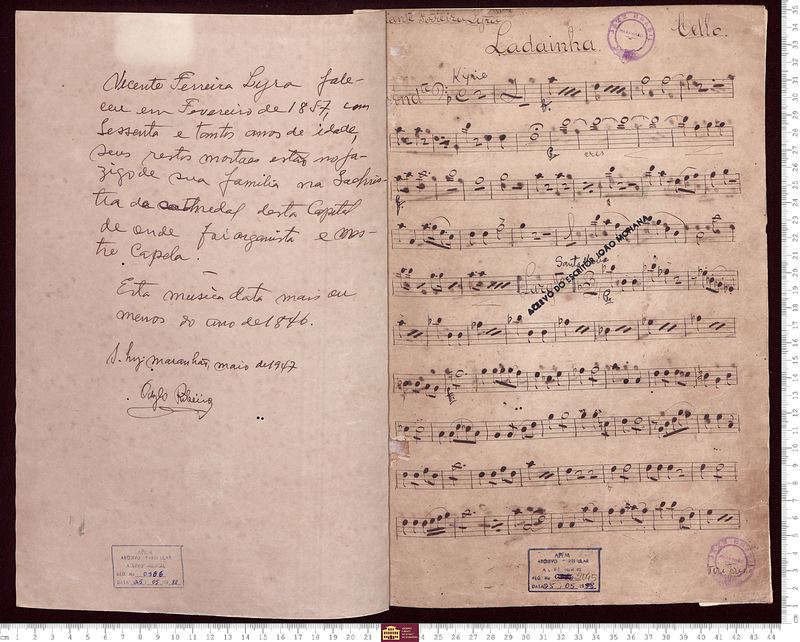 Vicente Ferreira Lyra fale-
ceu em Fevereiro de 1857, com
sessenta e tantos anos de idade,
seus restos mortaes estão no ja-
zigo de sua familia na Sachris-
tia da cathedral desta Capital
de onde foi organista e mes-
tre Capela.
Esta musica data mais ou
menos do ano de 1846.
S. Luiz, maranhão, maio de 1947
Ribeiro
APEM
ARQUIVO PARTICULAR
ACERVO MUSICAL
REG. No 0566
DATA 25 05 1988
Ferreira Lyra
Ladainha.
Cello.
Kyrie
And.te
cres
Santa Maria
ACERVO DO ESCRITOR JOÃO MOHANA
APEM
ARQUIVO
REG. No 2045
DATA 25 05